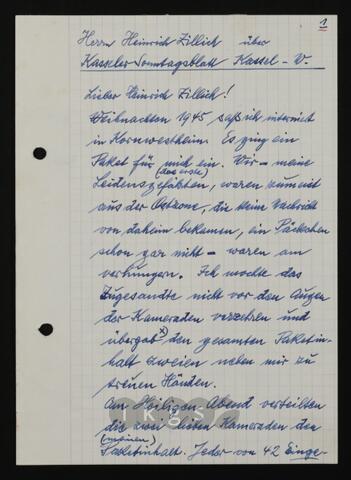 1
Herrn Heinrich Zillich über
Kasseler Sonntagsblatt Kassel - W.
Lieber Heinrich Zillich!
Weihnachten 1945 saß ich interniert
in Kornwestheim. Es ging ein
Paket für mich ein. Wir – meine
(das erste)
Leidensgefährten, waren zumeist
aus der Ostzone, die keine Nachricht
von daheim bekamen, ein Päckchen
schon gar nicht – waren am
verhungern. Ich mochte das
Zugesandte nicht vor den Augen
der Kameraden verzehren und
übergab x) den gesamten Paketin-
halt zweien neben mir zu
treuen Händen.
Am Heiligen Abend verteilten
die zwei lieben Kameraden den
(meinen)
Paketinhalt. Jeder von 42 Einge-
kgs